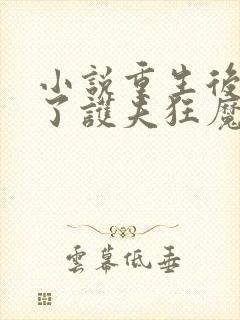 小說重生後
了護夫狂魔
雲幕低垂